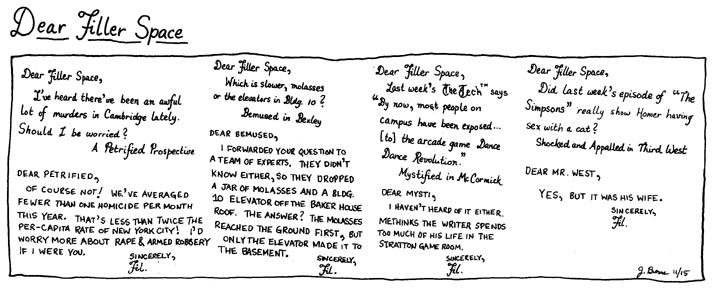 Dear Filler Space
Dear Filler Space,
I've heard there've been an awful
lot of murders in Cambridge lately.
Should I be worried?
A Petrified Prospective
DEAR PETRIFIED,
OF COURSE NOT! WE'VE AVERAGED
FEWER THAN ONE HOMICIDE PER MONTH
THIS YEAR. THAT'S LESS THAN TWICE THE
PER-CAPITA RATE OF NEW YORK CITY! I'D
WORRY MORE ABOUT RAPE & ARMED ROBBERY
IF I WERE YOU.
SINCERELY,
Fil.
Dear Filler Space,
Which is slower, molasses
or the elevators in Bldg. 10?
Bemused in Bexley
DEAR BEMUSED,
I FORWARDED YOUR QUESTION TO
A TEAM OF EXPERTS. THEY DIDN'T
KNOW EITHER, SO THEY DROPPED
A JAR OF MOLASSES AND A BLDG.
10 ELEVATOR OFF THE BAKER HOUSE
ROOF. THE ANSWER? THE MOLASSES
REACHED THE GROUND FIRST, BUT
ONLY THE ELEVATOR MADE IT TO
THE BASEMENT.
SINCERELY,
Fil.
Dear Filler Space,
Last week's The Tech™ says
"By now, most people on
campus have been exposed...
[to] the arcade game Dance
Dance Revolution."
Mystified in McCormick
DEAR MYSTI,
I HAVEN'T HEARD OF IT EITHER.
METHINKS THE WRITER SPENDS
TOO MUCH OF HIS LIFE IN THE
STRATTON GAME ROOM.
SINCERELY,
Fil.
Dear Filler Space,
Did last week's episode of "The
Simpsons" really show Homer having
sex with a cat?
Shocked and Appalled in Third West
DEAR MR. WEST,
YES, BUT IT WAS HIS WIFE.
SINCERELY,
Fil.
11/15